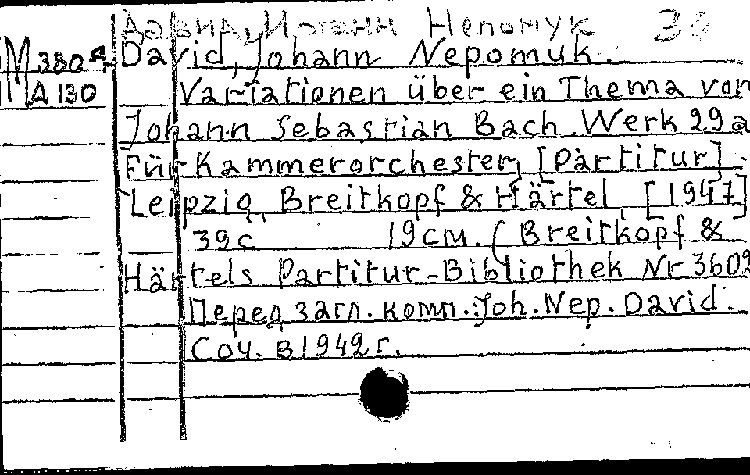 Давид, Иоганн Непомук 36
М 380 А David, Johann Nepomuk.
А 130 Variationen über ein Thema von
Johann Sebastian Bach. Werk 29a
Für Kammerorchester, [Partitur].
Leipzig, Breitkopf & Härtel, [1947]
39 с 19 см. (Breitkopf &
Härtels Partitur-Bibliothek Nr 3609
Перед загл. комп.: Joh. Nep. David.
Соч. в 1942 г.